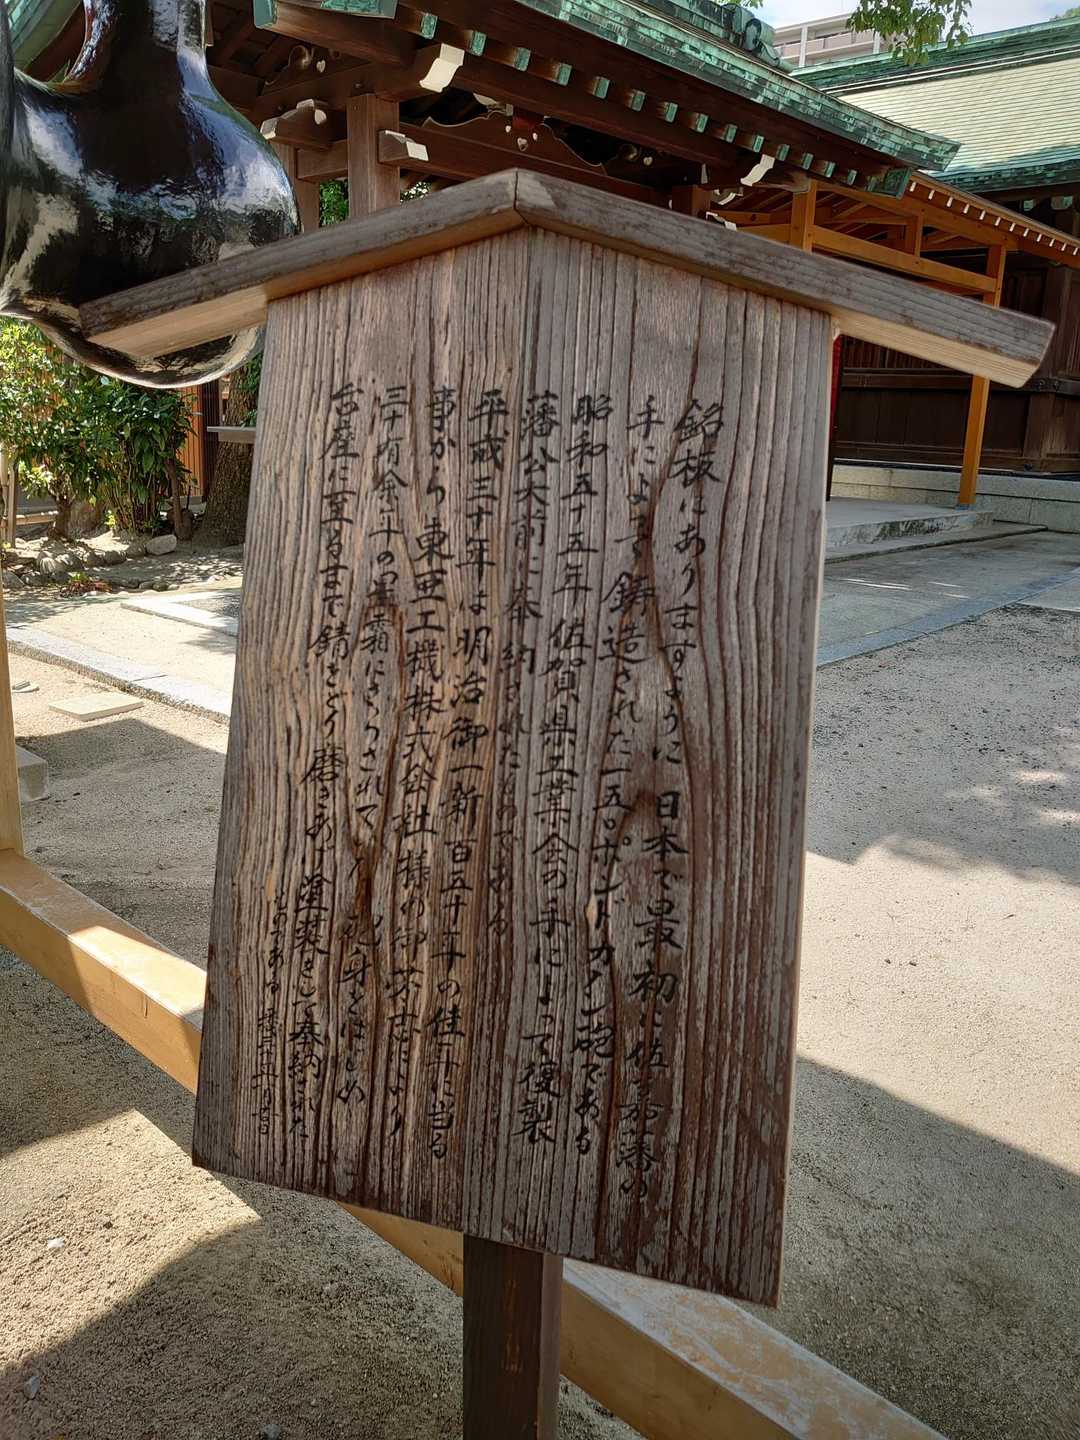 銘板にありますように日本で最初に佐賀藩の
手によって鋳造された一五〇ポンドカノン砲である
昭和五十五年佐賀県工業会の手によって復製
藩公大前に奉納されたものである
平成三十年は明治御一新百五十年の佳年に当る
事から東亜工機株式会社様の御芳志により
三十有余年の星霜にさらされて砲身をはじめ
台座に至るまで錆をとり磨きあげ塗装をして奉納された
ものである